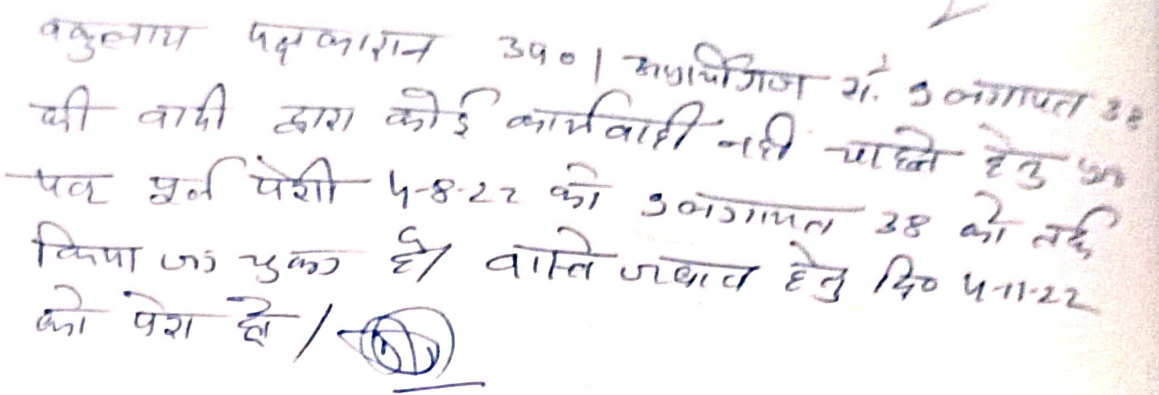 वकुलाय पक्षकारान उप०। अप्रार्थीगण सं. 9 लगायत 38
की वादी द्वारा कोई कार्यवाही नहीं चाहने हेतु प्रा०
पत्र पूर्व पेशी 4-8-22 को 9 लगायत 38 को तर्क
किया जा चुका है। वास्ते जवाब हेतु दि० 4-11-22
को पेश हो।